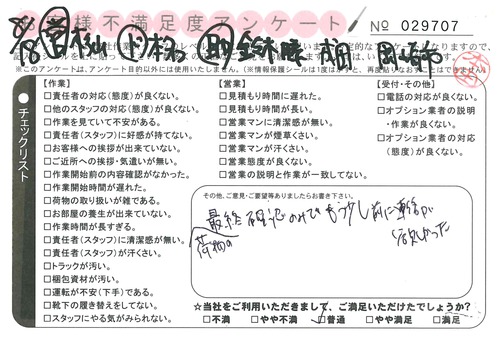 様不満足度アンケート
No 029707
8/18 営 杉山
※このアンケートは、アンケート目的以外には使用いたしません。(※情報保護シールは1度はがすと、再度貼りなおすことはできません。)
チェックリスト
【作業】
□責任者の対応(態度)が良くない。
□他のスタッフの対応(態度)が良くない。
□作業を見ていて不安がある。
□責任者(スタッフ)に好感が持てない。
□お客様への挨拶が出来ていない。
□ご近所への挨拶・気遣いが無い。
□作業開始前の内容確認がなかった。
□作業開始時間が遅れた。
□荷物の取り扱いが雑である。
□お部屋の養生が出来ていない。
□作業時間が長すぎる。
□責任者(スタッフ)に清潔感が無い。
□責任者(スタッフ)が汗くさい。
□トラックが汚い。
□梱包資材が汚い。
□運転が不安(下手)である。
□靴下の履き替えをしてない。
□スタッフにやる気がみられない。
【営業】
□見積もり時間に遅れた。
□見積もり時間が長い。
□営業マンに清潔感が無い。
□営業マンが煙草くさい。
□営業マンが汗くさい。
□営業態度が良くない。
□営業の説明と作業が一致してない。
【受付・その他】
□電話の対応が良くない。
□オプション業者の説明
・作業が良くない。
□オプション業者の対応
(態度)が良くない。
その他、ご意見・ご要望等ありましたらお書き下さい。
最終確認のみでもう少し前に連絡が
荷物の
欲しかった
☆当社をご利用いただきまして、ご満足いただけたでしょうか?
□不満 □やや不満 □普通 □やや満足 □満足